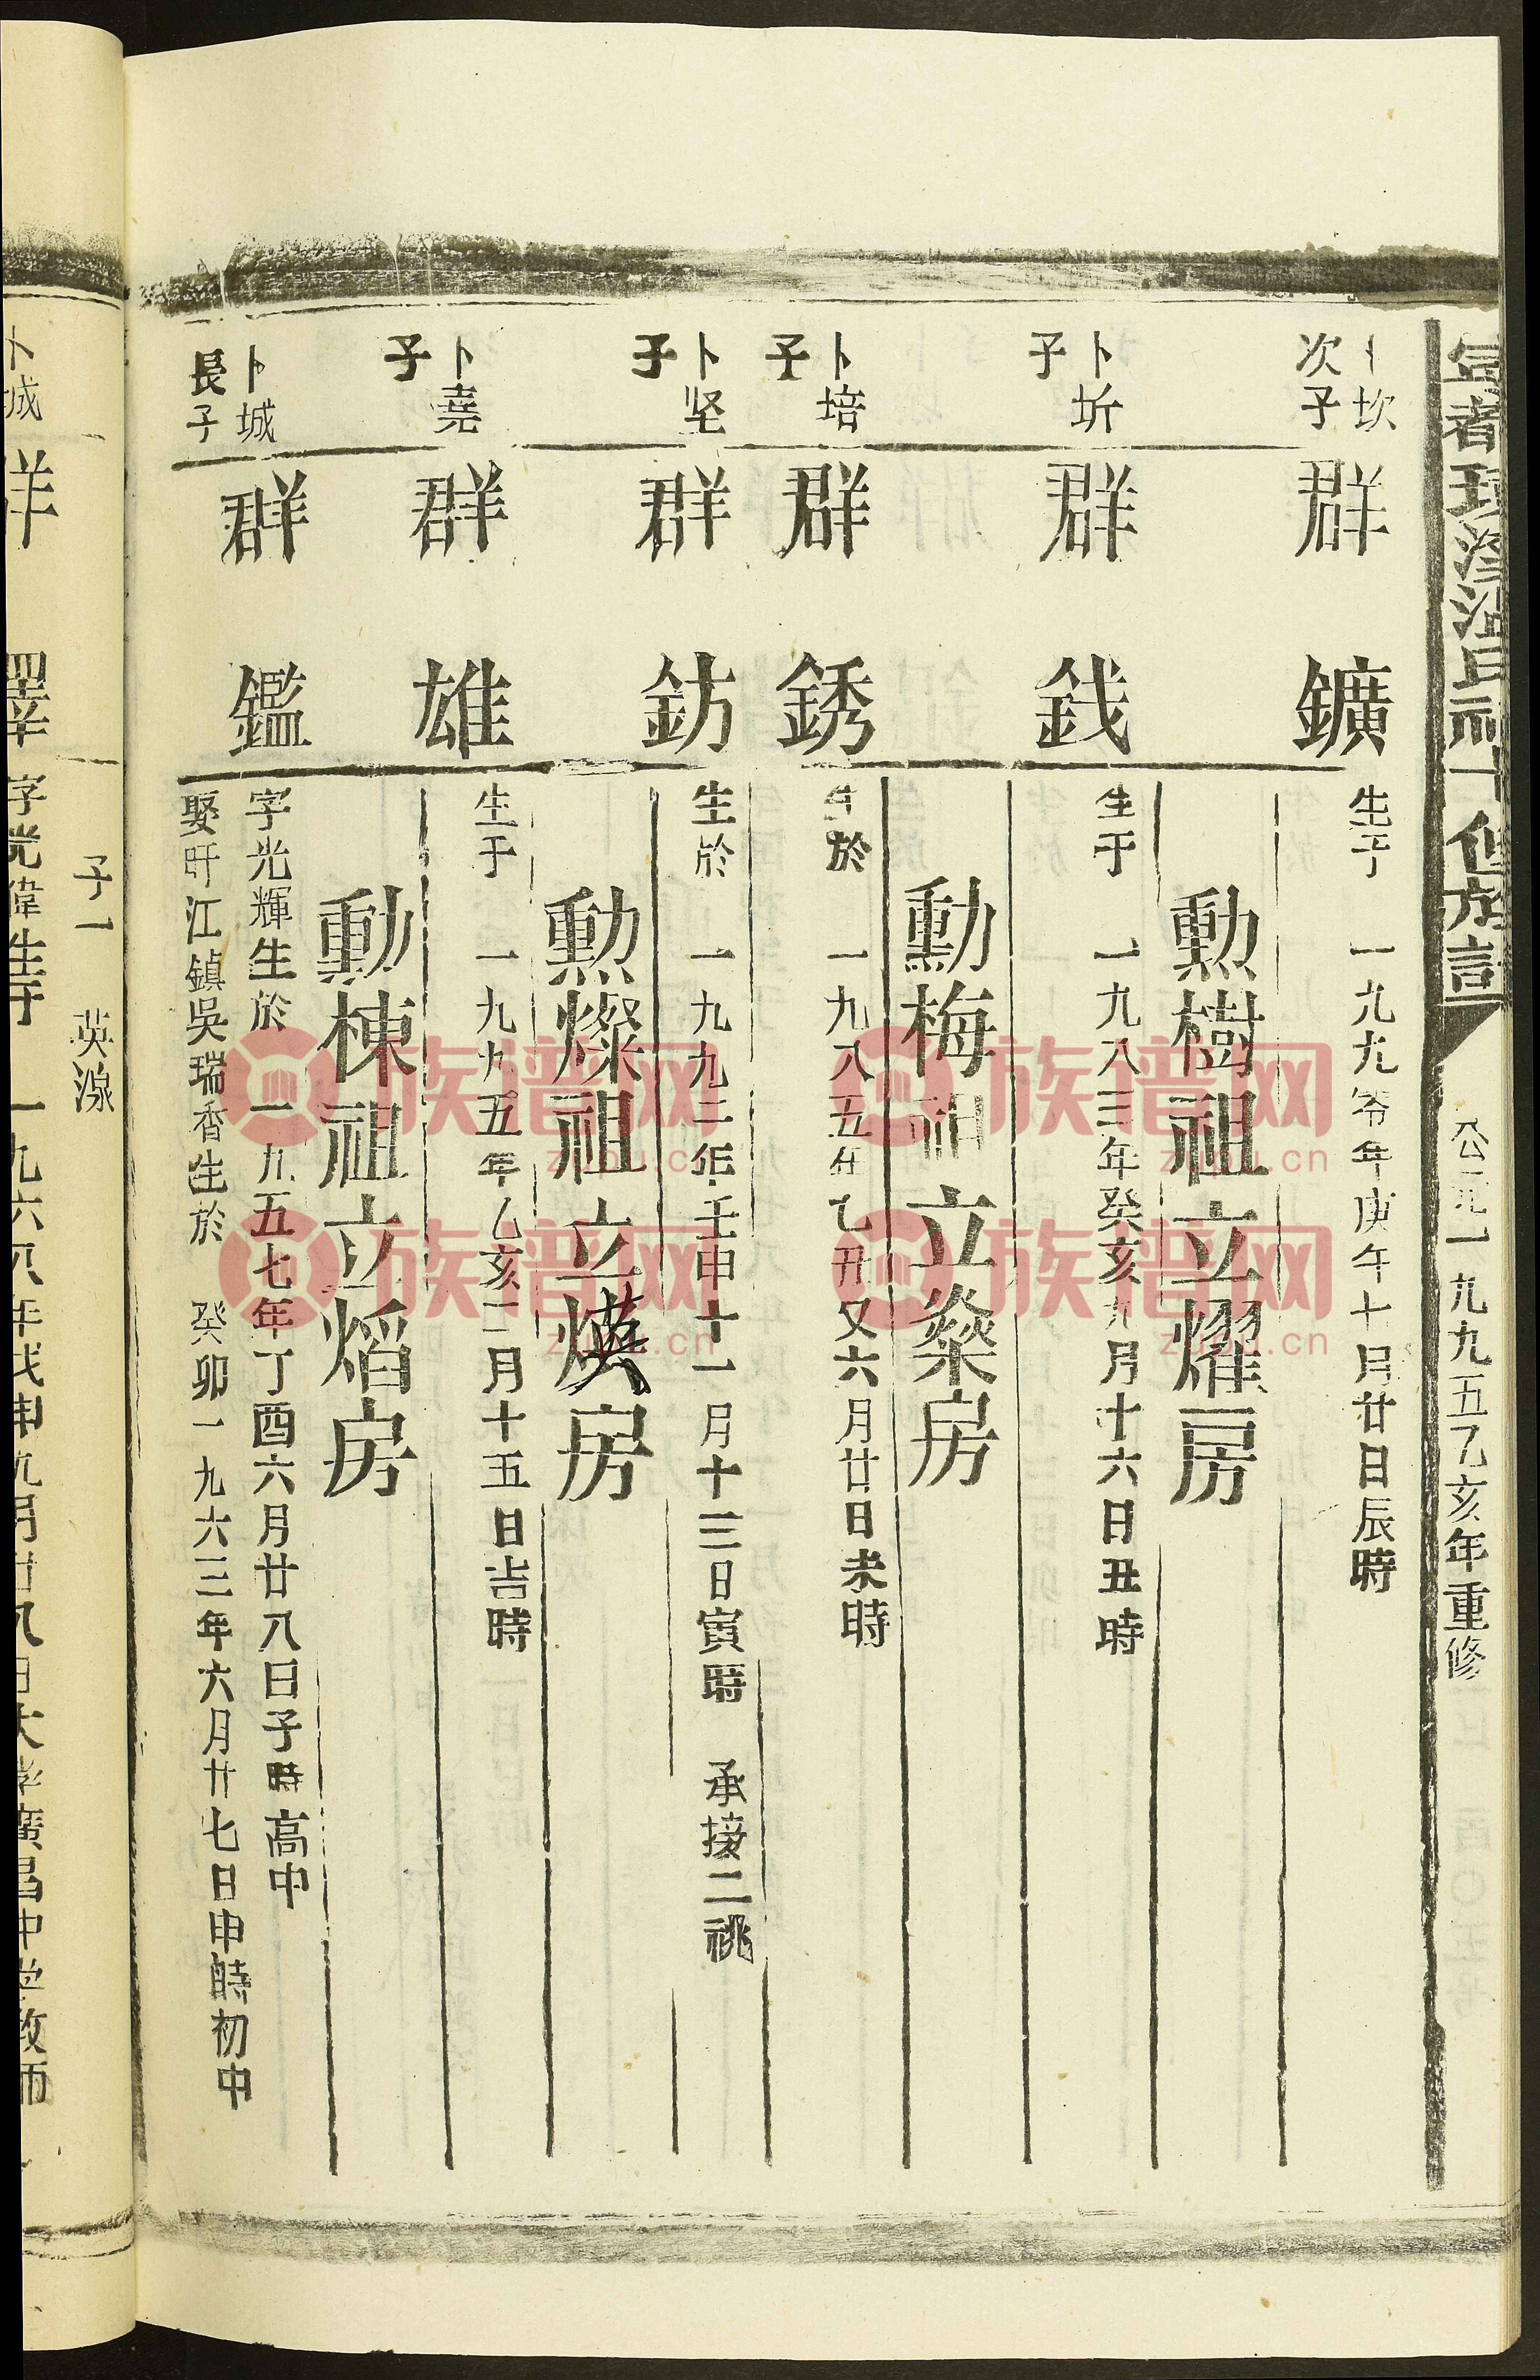 公元一九九五乙亥年重修
卜坎
次子
群鑛
生于 一九九零年庚午十月廿日辰時
勲樹祖立燿房
卜圻
子
群銭
生于 一九八三年癸亥九月十六日丑時
勲梅祖立燊房
卜培
子
群銹
生於 一九八五年乙丑又六月廿日未時
卜坚
子
群鈁
生於 一九九二年壬申十一月十三日寅時 承接二祧
勲燦祖立煐房
卜堯
子
群雄
生于 一九九五年乙亥二月十五日吉時
勲棟祖立熖房
卜城
長子
群鑑
字光輝生於 一九五七年丁酉六月廿八日子時高中
娶旴江鎮吳瑞香生於 癸卯一九六三年六月廿七日申時初中
子一 英湶
卜城
字光偉生于 一九六八年戊申九月廿八日大學廣昌中学教师
族谱网
zupu.cn
族谱网
zupu.cn
族谱网
zupu.cn
族谱网
zupu.cn